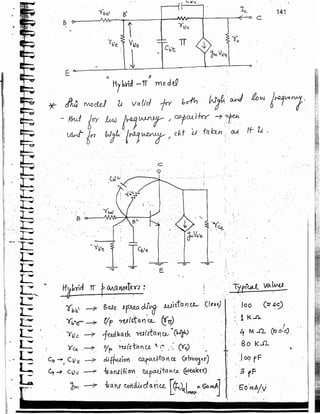 141
rbb' B' rb'c Ic
B C
rb'e Vb'e Cb'e π gmVb'e ro
E
"Hybrid - π" model
* This model is valid for both high and low frequency.
- But for low frequency, capacitor → open
and for high frequency, ckt is taken as it is.
C
Cb'c
rb'c
B rbb' B' rce
gmVb'e
rb'e Cb'e
E
Hybrid π parameters : Typical values
rbb' → Base spreading resistance (less) 100
rb'e → i/p resistance 1 KΩ
rb'c → feedback resistance (high) 4 MΩ
rce → o/p resistance 80 KΩ
Cb'e → diffusion capacitance (stronger) 100 pF
Cb'c → transition capacitance (weaker) 3 pF
gm → trans conductance 50 mA/V